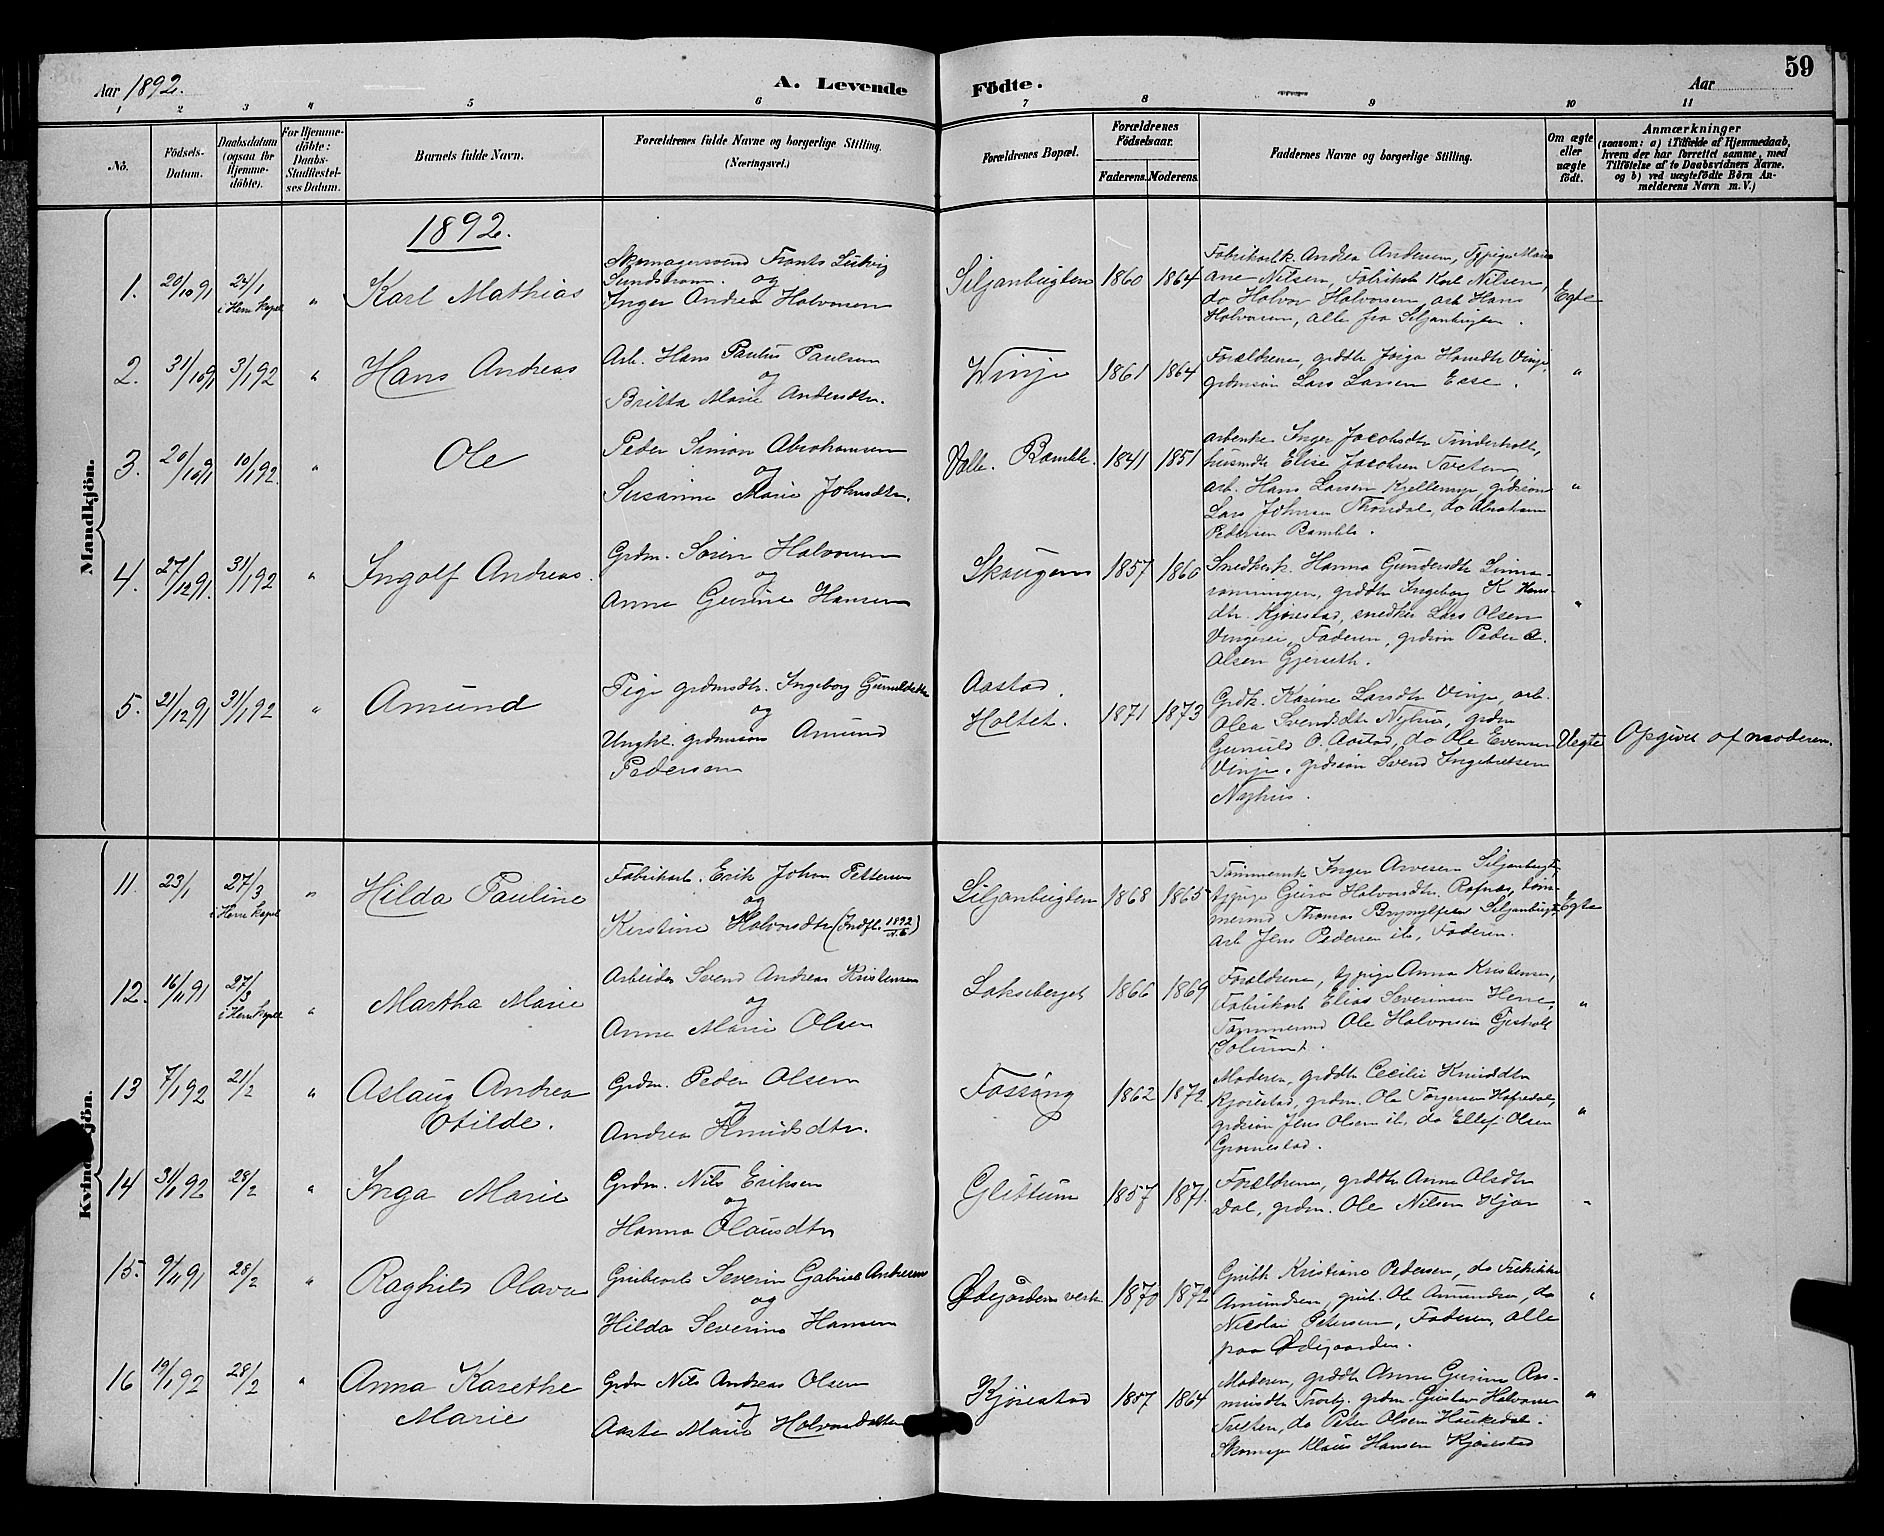 Aar 1892. A. Levende Födte. Aar 59
1 2 3 4 5 6 7 8 9 10 11
No.
Födsels-
Datum.
Daabsdatum
(ogsaa for
Hjemme-
döbte).
For Hjemme-
döbte:
Daabs-
Stadfæstel-
ses Datum.
Barnets fulde Navn.
Forældrenes fulde Navne og borgerlige Stilling.
(Næringsvei.)
Forældrenes Bopæl.
Forældrenes
Födselsaar.
Faderens. Moderens.
Faddernes Navne og borgerlige Stilling.
Om ægte
eller
uægte
födt.
Anmærkninger
(saasom: a) i Tilfælde af Hjemmedaab,
hvem der har forrettet samme, med
Tilföielse af to Daabsvidners Navne.
og b) ved uægtefödte Börn An-
melderens Navn m. V.)
Mandkjön.
1892.
1. 20/10 91 24/1
i Herre Kapel
"
Karl Mathias
Skomagersvend Frants Ludvig
Sundstrom. og
Inger Andrea Halvorsen
Siljanbugten 1860 1864
Fabrikarbk. Andrea Andersen, Tjpige Mari-
ane Nilsen, Fabrikarb Karl Nilsen,
do Halvor Halvorsen, arb Hans
Halvorsen, alle fra Siljanbugten.
Egte
2. 31/10 91 3/1 92 "
Hans Andreas
Arb. Hans Paulus Paulsen
og
Britta Marie Andersdtr.
Winje 1861 1864
Forældrene, grddtr Jörga Hansdtr Vinje,
grdmsön Lars Larsen Ease.
"
3. 20/10 91 10/1 92. "
Ole
Peder Simon Abrahamsen
og
Susanne Marie Johnsdtr.
Valle. Bamble. 1841 1851
arbenke Inger Jacobsdtr Tinderholt,
husmdtr Elise Jacobsen Tveten,
arb. Hans Larsen Kjellemyr, grdsön
Lars Johnsen Thordal, do Abraham
Pedersen Bamble.
"
4. 27/12 91. 31/1 92 "
Ingolf Andreas.
Grdm. Sören Halvorsen
og
Anne Gurine Hansen
Skougen 1857 1860
Snedkerk. Hanna Gundersdtr
grddtr Ingeborg K Hans-
dtr. Kjörestad, snedker Lars Olsen
Vingerei, Faderen, grdsön Peder A.
Olsen Gjerseth.
"
5. 21/12 91 31/1 92 "
Amund
Pige grdmsdtr. Ingeborg Gunuldsdtr
og
Ungkl. grdmssön Amund
Pedersen
Aastad.
Holtet. 1871 1873
Grdk. Karine Larsdtr Vinje, arb.
Olea Svendsdtr Nyhus, grdm
Gunuld O. Aastad, do Ole Evensen
Vinje, grdsön Svend Ingebretsen
Nyhus.
Uegte Opgivet af moderen.
Kvindekjön.
11. 23/1 27/3
i Herre Kapel
"
Hilda Pauline
Fabrikarb. Erik Johan Pettersen
og
Kerstine Halvorsdtr (Indfl. 1892 N. 6)
Siljanbugten 1868 1865
Tömmermk Inger Arvesen Siljanbugt,
tjpige Gura Halvorsdtr. Rafnæs, töm-
mermd Thomas Brynylfsen Siljanbugt,
arb Jens Pedersen ib, Faderen.
Egte
12. 16/11 91 27/3
i Herre Kapel
"
Martha Marie
Arbeider Svend Andreas Kristensen
og
Anne Marie Olsen
Lakseberget 1866 1869
Forældrene, tjpige Anna Kristensen,
Fabrikarb Elias Severinsen Herre,
Tömmermd Ole Halvorsen Gjesholt
Solund.
"
13 7/1 92 21/2 "
Aslaug Andrea
Otilde.
Grdm. Peder Olsen
og
Andrea Knudsdtr.
Fossöng 1862 1872
Moderen, grddtr Cecilie Knudsdtr
Kjörestad, grdm. Ole Torgersen Hafredal,
grdsön Jens Olsen ib, do Ellef Olsen
Grönnestad.
"
14 31/1 92 28/2 "
Inga Marie
Grdm. Nils Eriksen
og
Hanna Olausdtr
Glittum 1857 1871.
Forældrene, grddtr Anne Olsdtr
Dal, grdm. Ole Nilsen Hjær
"
15. 9/11 91 28/2 "
Raghild Olava
Grubearb Severin Gabriel Andersen
og
Hilda Severine Hansen
Ödegårdens verk 1870 1872
Grubk Kristiane Pedersen, do Fredrikke
Amundsen, grub. Ole Amundsen, do
Nicolai Petersen, Faderen, alle
paa Ödegaarden.
"
16 19/1 92 28/2 "
Anna Karethe
Marie
Grdm Nils Andreas Olsen
og
Aaste Marie Halvorsdatter
Kjörestad 1857 1864
Moderen, grddtr Anne Gurine Aas-
mundtr Trosby, grdm. Gustav Halvorsen
Tveten, do Peter Olsen Haukedal.
Skomager Klaus Hansen Kjörestad
"